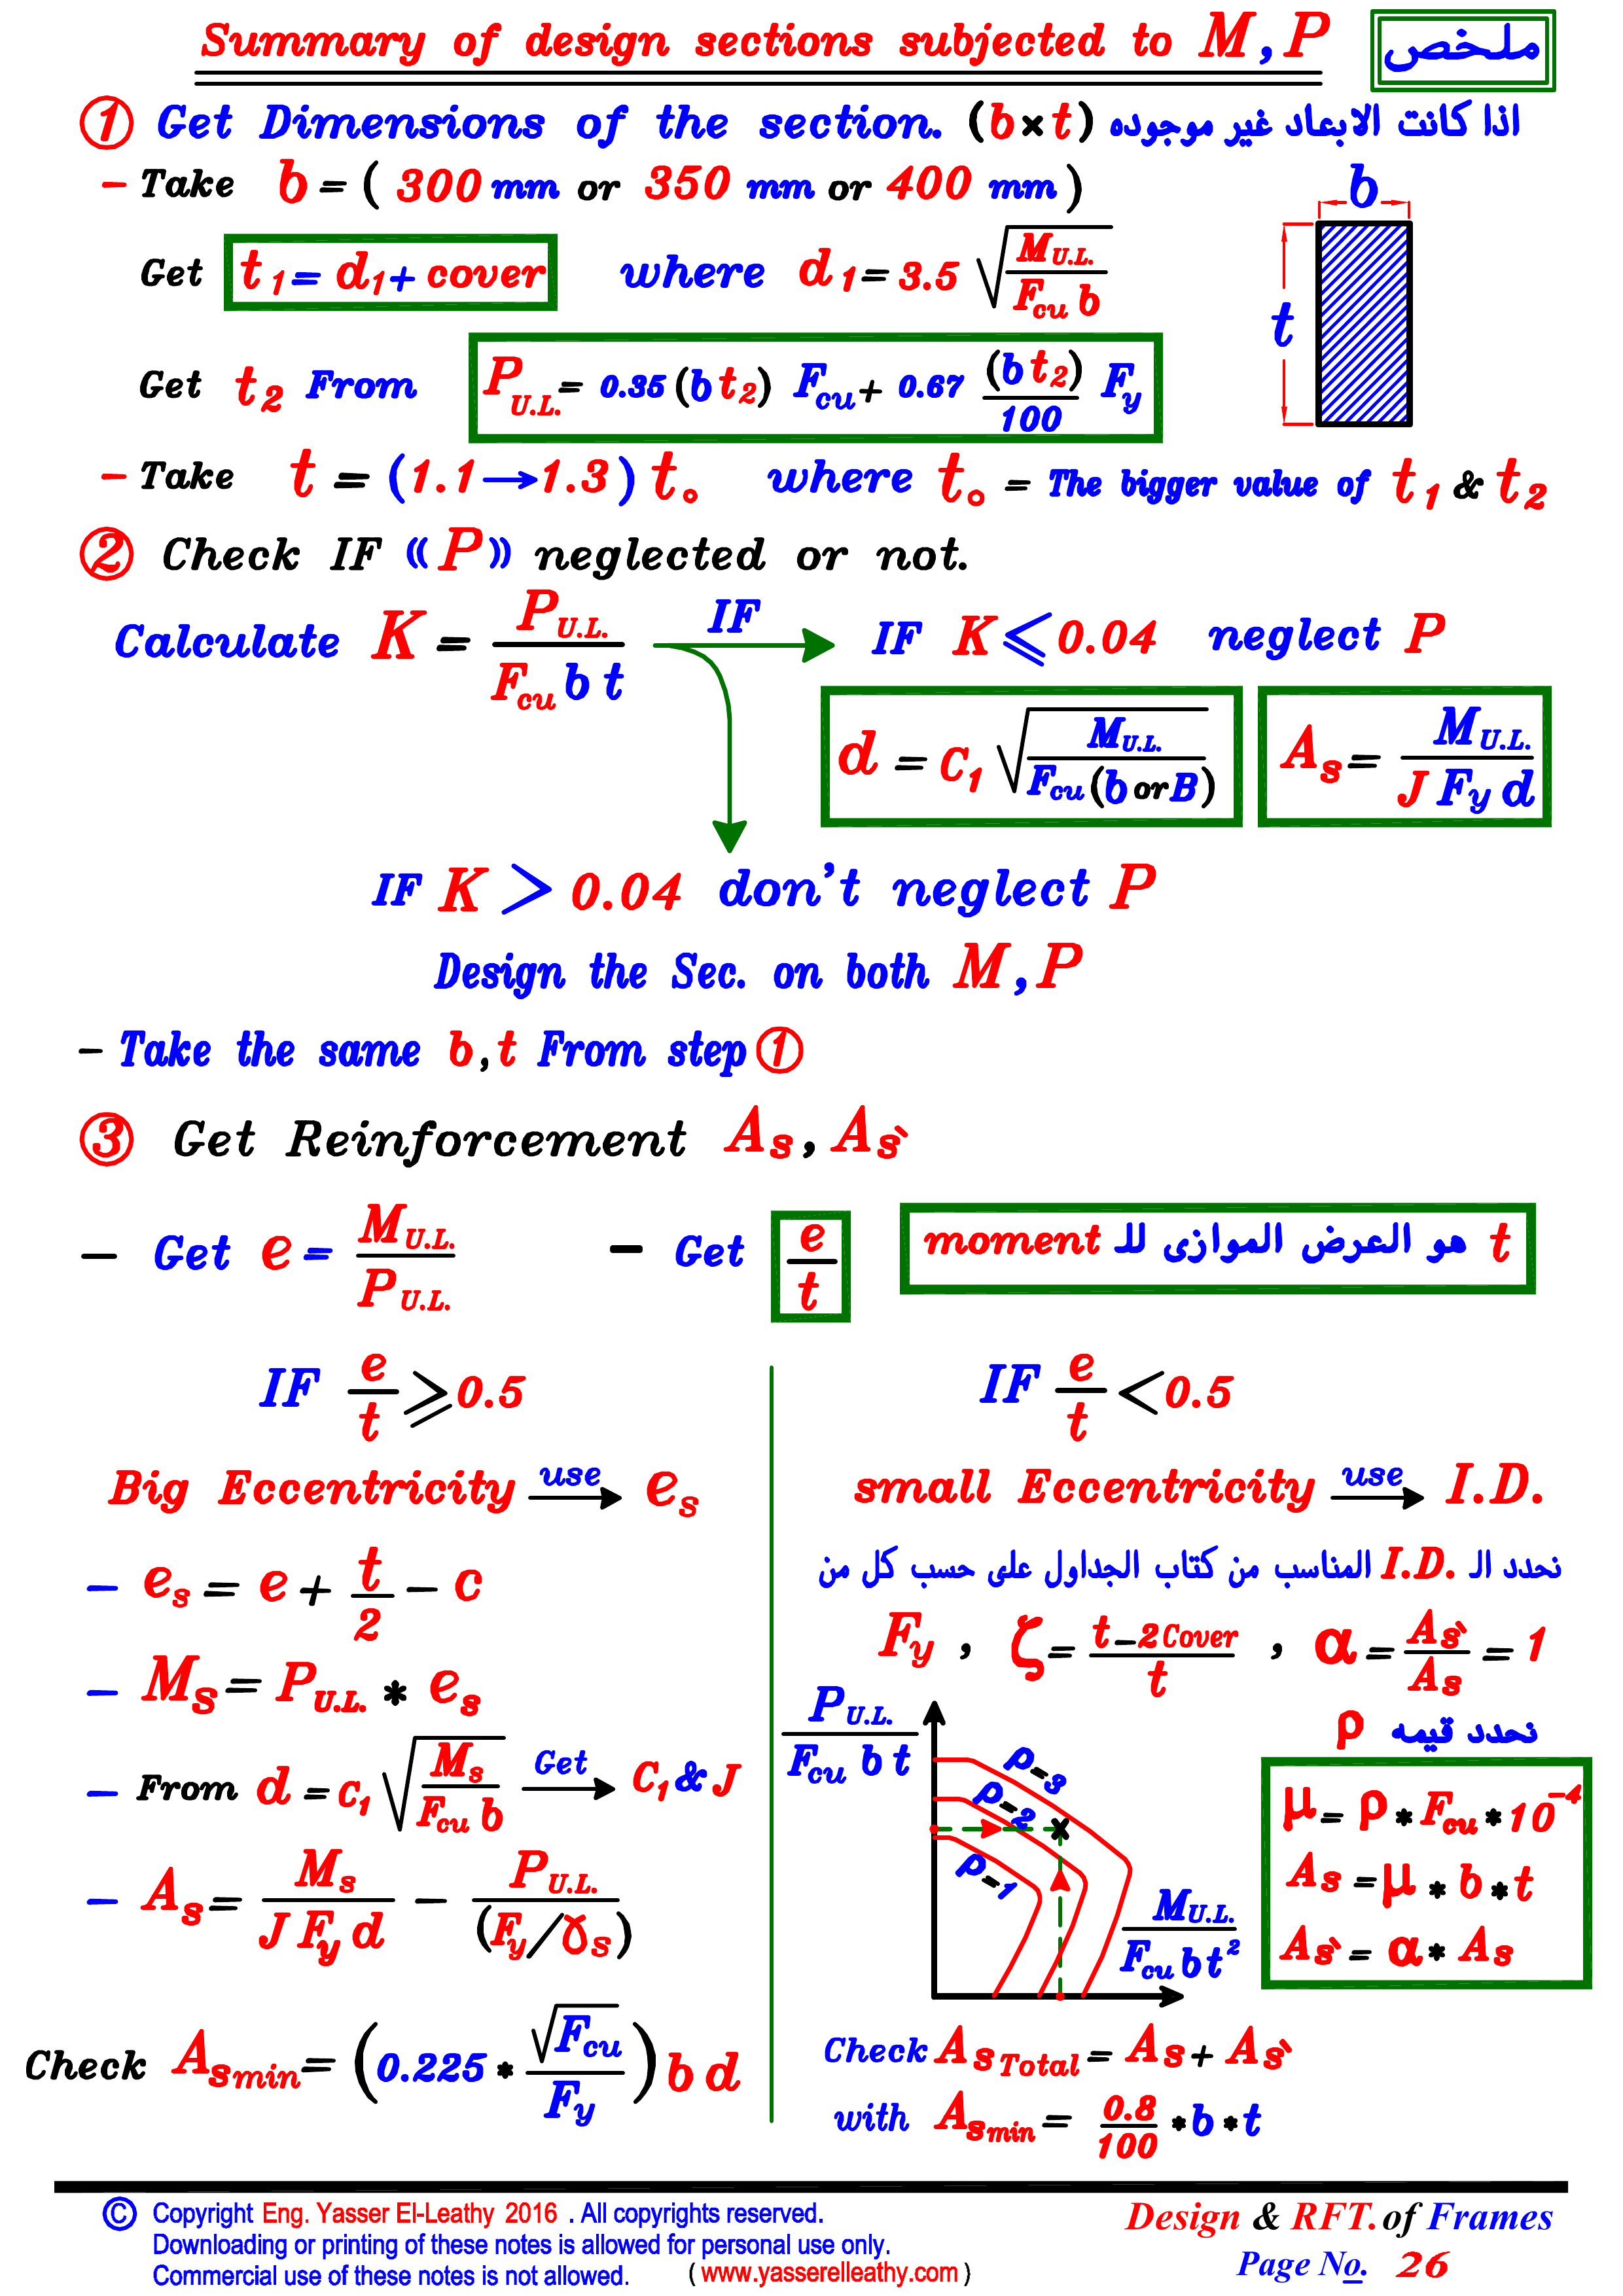 Summary of design sections subjected to M , P ملخص
① Get Dimensions of the section. (b×t) اذا كانت الابعاد غير موجوده
- Take b = ( 300 mm or 350 mm or 400 mm )
b
Get t1 = d1 + cover where d1 = 3.5 √(M U.L. / Fcu b)
t
Get t2 From P U.L. = 0.35 (b t2) Fcu + 0.67 (b t2)/100 Fy
- Take t = (1.1 → 1.3) t₀ where t₀ = The bigger value of t1 & t2
② Check IF «P» neglected or not.
Calculate K = P U.L. / Fcu b t IF IF K ⩽ 0.04 neglect P
d = C1 √(M U.L. / Fcu (b or B)) As = M U.L. / J Fy d
IF K > 0.04 don't neglect P
Design the Sec. on both M , P
- Take the same b , t From step ①
③ Get Reinforcement As , As`
- Get e = M U.L. / P U.L. - Get e/t t هو العرض الموازى للـ moment
IF e/t ⩾ 0.5
Big Eccentricity use → es
- es = e + t/2 - c
- Ms = P U.L. * es
- From d = C1 √(Ms / Fcu b) Get → C1 & J
- As = Ms / J Fy d - P U.L. / (Fy/γs)
Check As min = (0.225 * √Fcu / Fy) b d
IF e/t < 0.5
small Eccentricity use → I.D.
نحدد الـ I.D. المناسب من كتاب الجداول على حسب كل من
Fy , ζ = t - 2 Cover / t , α = As` / As = 1
نحدد قيمه ρ
P U.L. / Fcu b t
ρ-3
ρ-2
ρ-1
M U.L. / Fcu b t²
μ = ρ * Fcu * 10⁻⁴
As = μ * b * t
As` = α * As
Check As Total = As + As`
with As min = 0.8/100 * b * t
© Copyright Eng. Yasser El-Leathy 2016 . All copyrights reserved.
Downloading or printing of these notes is allowed for personal use only.
Commercial use of these notes is not allowed. ( www.yasserelleathy.com )
Design & RFT. of Frames
Page No. 26